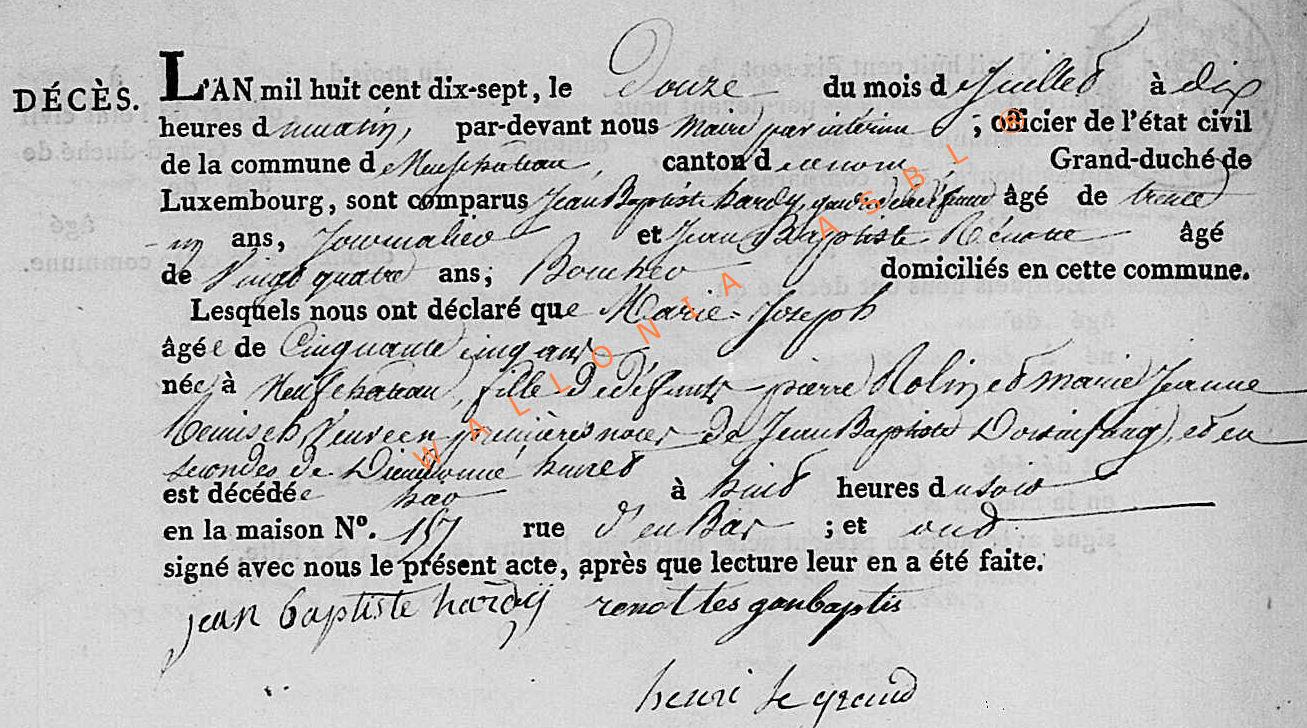 DÉCÈS.
L'AN mil huit cent dix-sept, le Douze du mois de Juillet à dix
heures du matin, par-devant nous Maire par interim ; officier de l'état civil
de la commune de Neufchateau, canton de ce nom, Grand-duché de
Luxembourg, sont comparus Jean Baptiste hardy, gendre de la défunte âgé de trente
un ans, Journalier et Jean Baptiste Rénotte âgé
de Vingt quatre ans; Boucher domiciliés en cette commune.
Lesquels nous ont déclaré que Marie-Joseph
âgée de Cinquante cinq ans
née à Neufchateau, fille de défunts pierre Rolin et marie Jeanne
Veuve en premières noces de Jean Baptiste et en
secondes de Dieudonné
est décédée hier à huit heures du soir
en la maison N°. 157 rue d'en Bas ; et ont
signé avec nous le présent acte, après que lecture leur en a été faite.
jean baptiste hardy renottes
henri le grand
WALLONIA ASBL ©